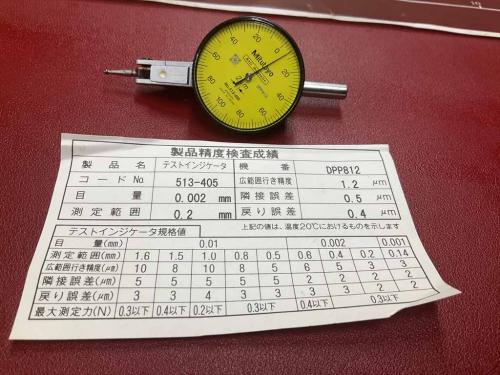 0
20
40
60
80
100
80
60
40
20
Mitutoyo
製品精度検査成績
製品名 テストインジケータ 機番 DPP812
コードNo. 513-405 広範囲行き精度 1.2 μm
目量 0.002 mm 隣接誤差 0.5 μm
測定範囲 0.2 mm 戻り誤差 0.4 μm
テストインジケータ規格値 上記の値は、温度20℃におけるものを示します
目量(mm) 0.01 0.002 0.001
測定範囲(mm) 1.6 1.5 1.0 0.8 0.5 0.6 0.4 0.2 0.14
広範囲行き精度(μm) 10 8 10 8 5 6 5 3 3
隣接誤差(μm) 5 5 5 5 5 2 2 2 2
戻り誤差(μm) 3 3 4 3 3 3 2 2 2
最大測定力(N) 0.3以下 0.4以下 0.2以下 0.3以下 0.4以下 0.3以下